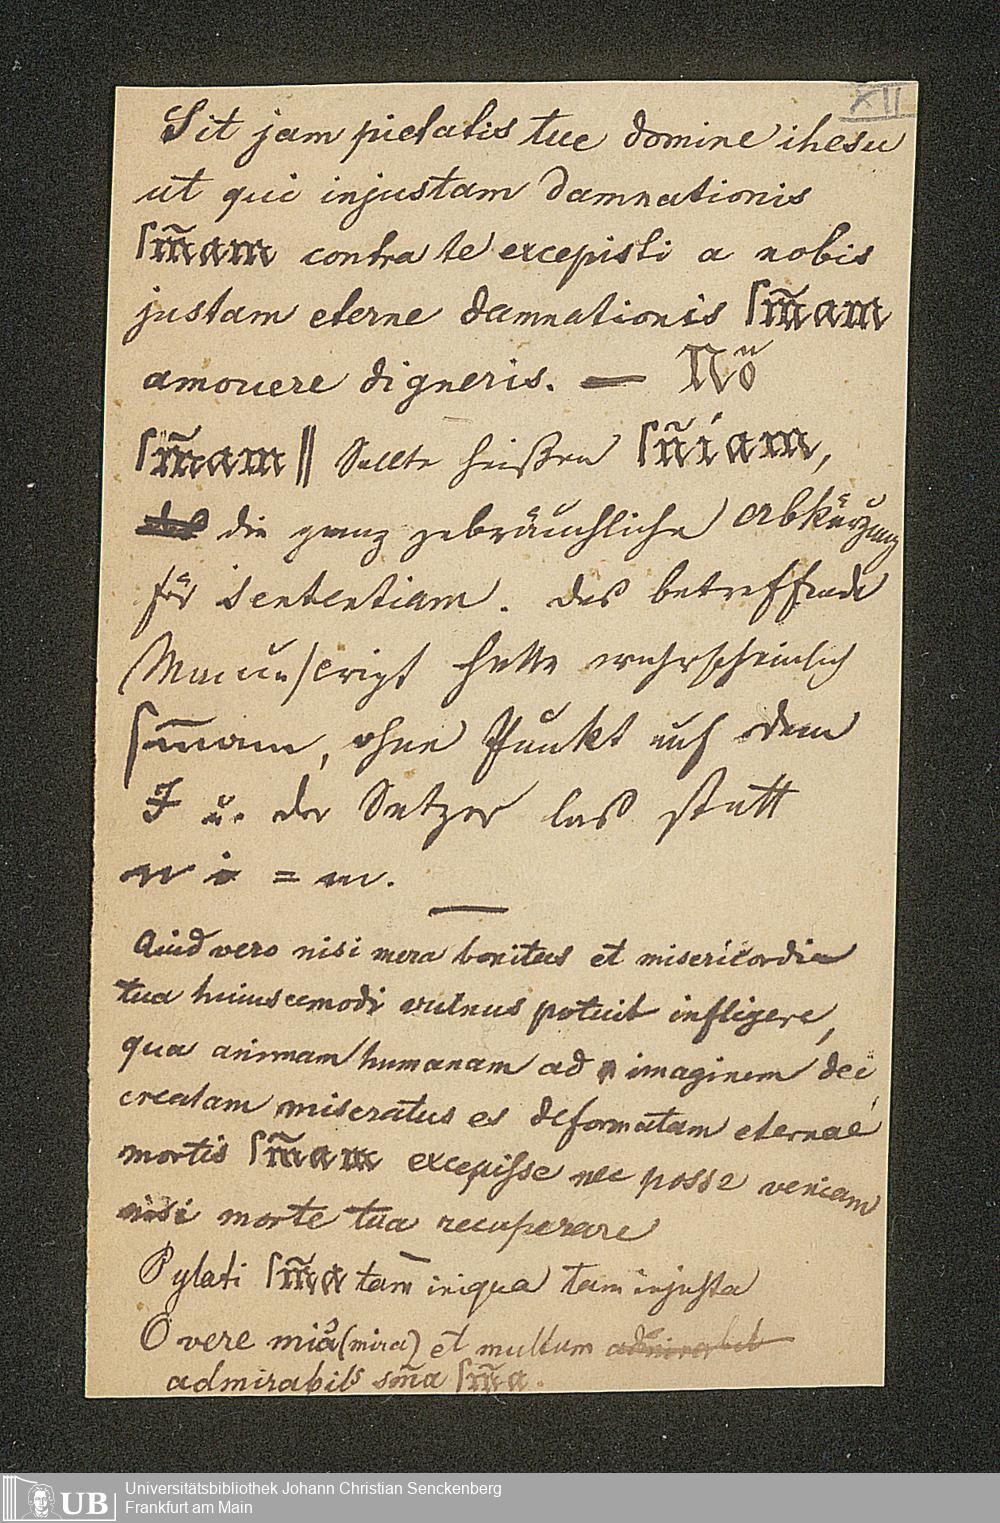 XII
Sit jam pietatis tue domine ihesu
ut qui injustam damnationis
ſm̄am contra te excepisti a nobis
justam eterne damnationis ſm̄am
amovere digneris. — Nō
ſm̄am || Sollte heißen ſn̄íam,
die ganz gebräuchliche Abkürzung
für sententiam. Das betreffende
Manuscript hatte wahrscheinlich
ſm̄am, ohne Punkt auf dem
I u. der Setzer las statt
n i = m.
Quid vero nisi mera bonitas et misericordia
tua huiuscemodi vulnus potuit infligere,
qua animam humanam ad imaginem dei
creatam miseratus es deformatam eternae
mortis ſm̄am excepiſse nec posse veniam
nisi morte tua recuperare
Pylati ſm̄a tam iniqua tam injuſta
O vere mia (mira) et multum
admirabilis sm̄a ſm̄a.
UB Universitätsbibliothek Johann Christian Senckenberg
Frankfurt am Main